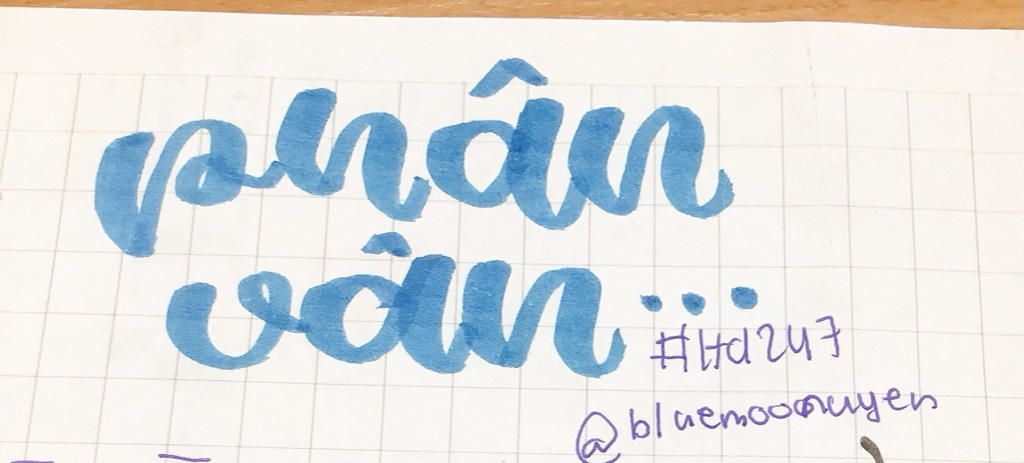 phân
vân...
#ltd247
@bluemoonuyen